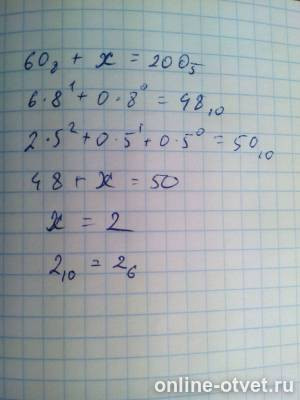 60₈ + x = 200₅
6·8¹ + 0·8⁰ = 48₁₀
2·5² + 0·5¹ + 0·5⁰ = 50₁₀
48 + x = 50
x = 2
2₁₀ = 2₆
online-otvet.ru